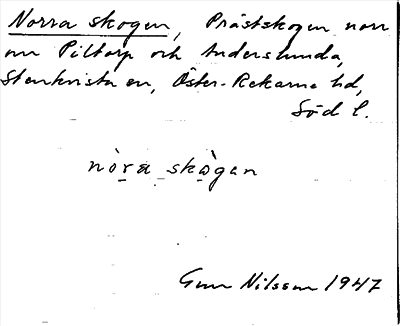 Norra skogen, Prästskogen norr
om Piltorp och Anderslunda,
Stenkvista sn, Öster-Rekarne hd,
Söd l.
nòra skògen
Gun Nilsson 1947